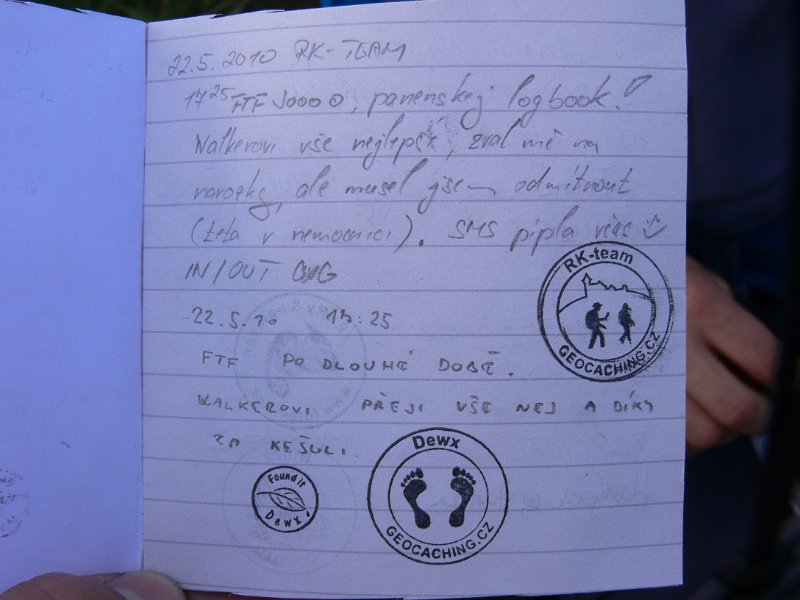 22.5.2010 RK-TEAM
17 25 FTF JOOOO, panenskej logbook!
Walkerovi vše nejlepší, zval mě na
narozky, ale musel jsem odmítnout
(teta v nemocnici). SMS pípla včas
IN/OUT CWG
22.5.10 17:25
FTF PO DLOUHÉ DOBĚ.
WALKEROVI PŘEJI VŠE NEJ A DÍKY
ZA KEŠULI.
RK-team
GEOCACHING.CZ
Dewx
GEOCACHING.CZ
Found it
Dewx